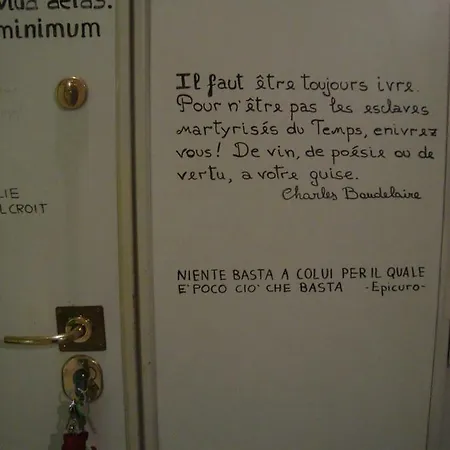 aetas.
minimum
Il faut être toujours ivre.
Pour n'être pas les esclaves
martyrisés du Temps, enivrez
vous! De vin, de poésie ou de
vertu, a votre guise.
Charles Baudelaire
LIE
L CROIT
NIENTE BASTA A COLUI PER IL QUALE
E' POCO CIO' CHE BASTA -Epicuro-